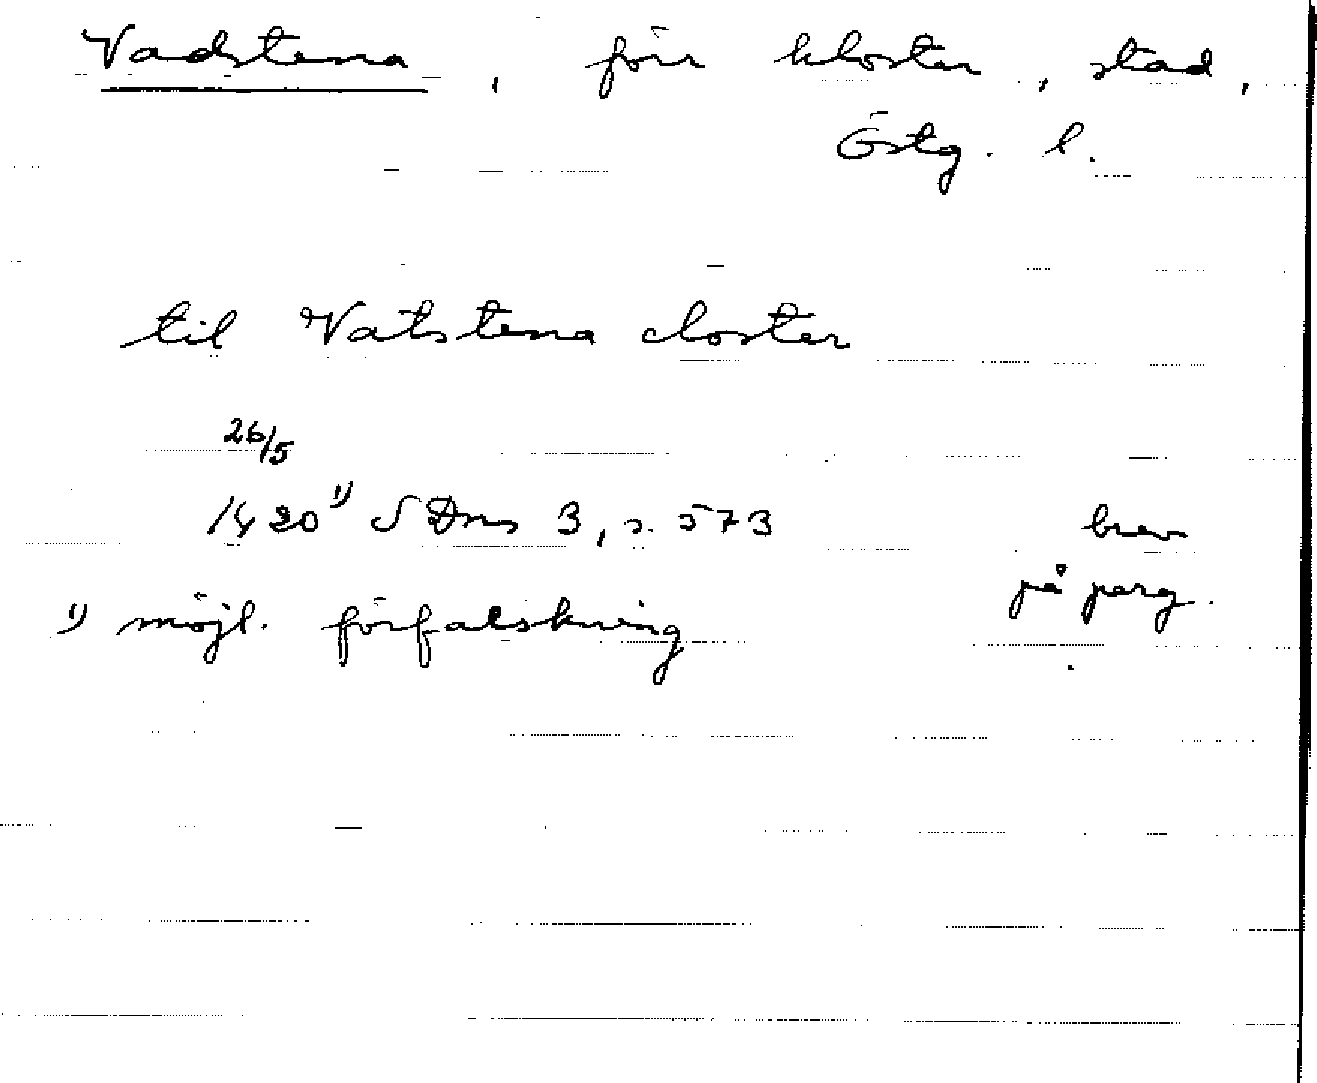 Vadstena, förr kloster, stad,
Östg. l.
til Vatstena closter
26/5
1420 1) SDns 3, s. 573 brev
på perg.
1) möjl. förfalskning